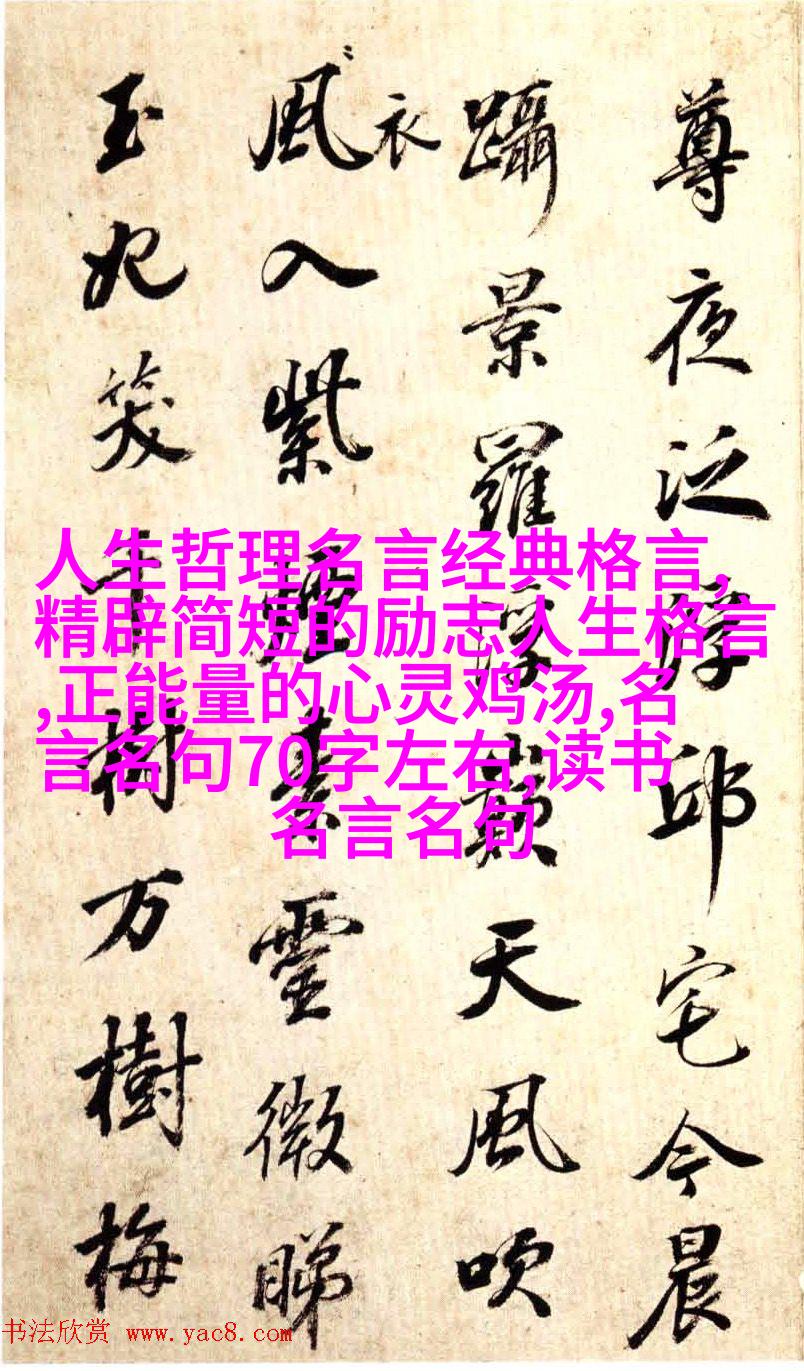 尊夜泛淳邱宅今晨
躡景羅浮天風吹
風衣入紫煙素靈微睇
玉妃笑千樹万樹梅
人生哲理名言经典格言,
精辟简短的励志人生格言
,正能量的心灵鸡汤,名
言名句70字左右,读书
名言名句
书法欣赏 www.yac8.com